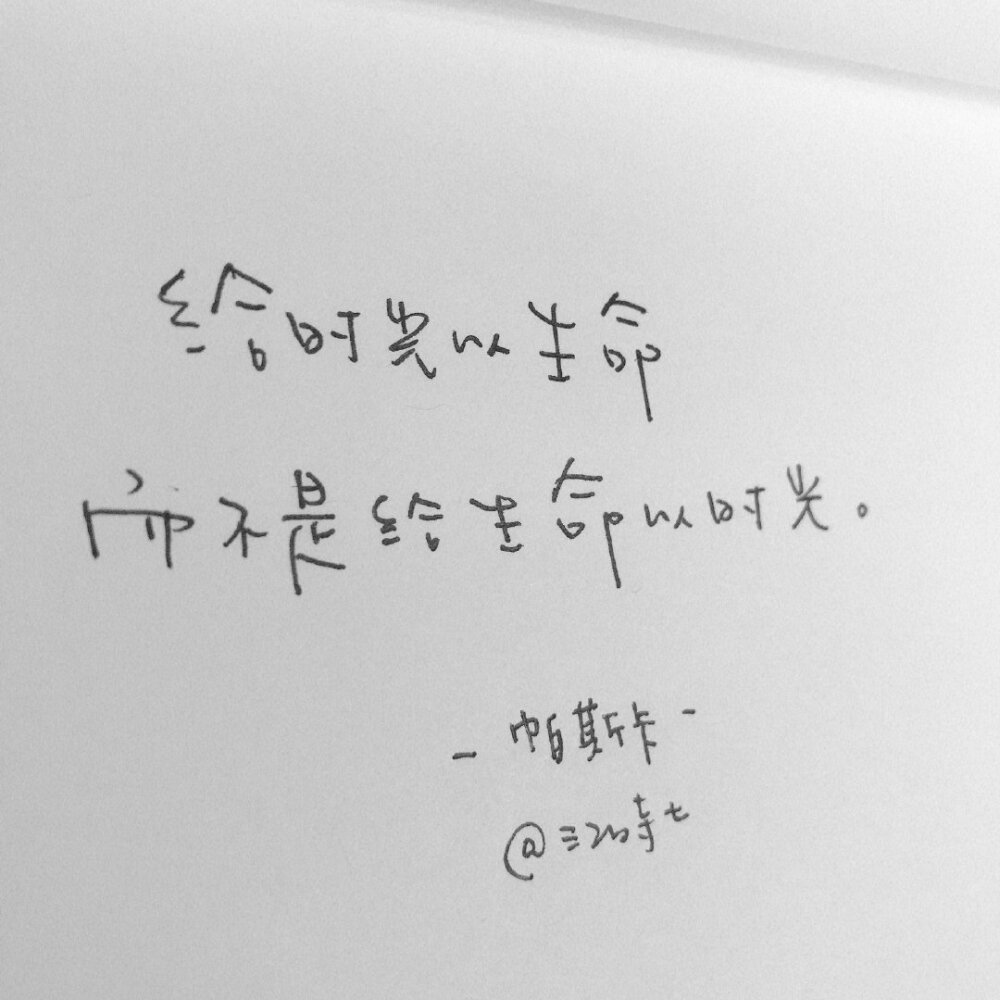 给时光以生命
而不是给生命以时光。
- 帕斯卡 -
@三